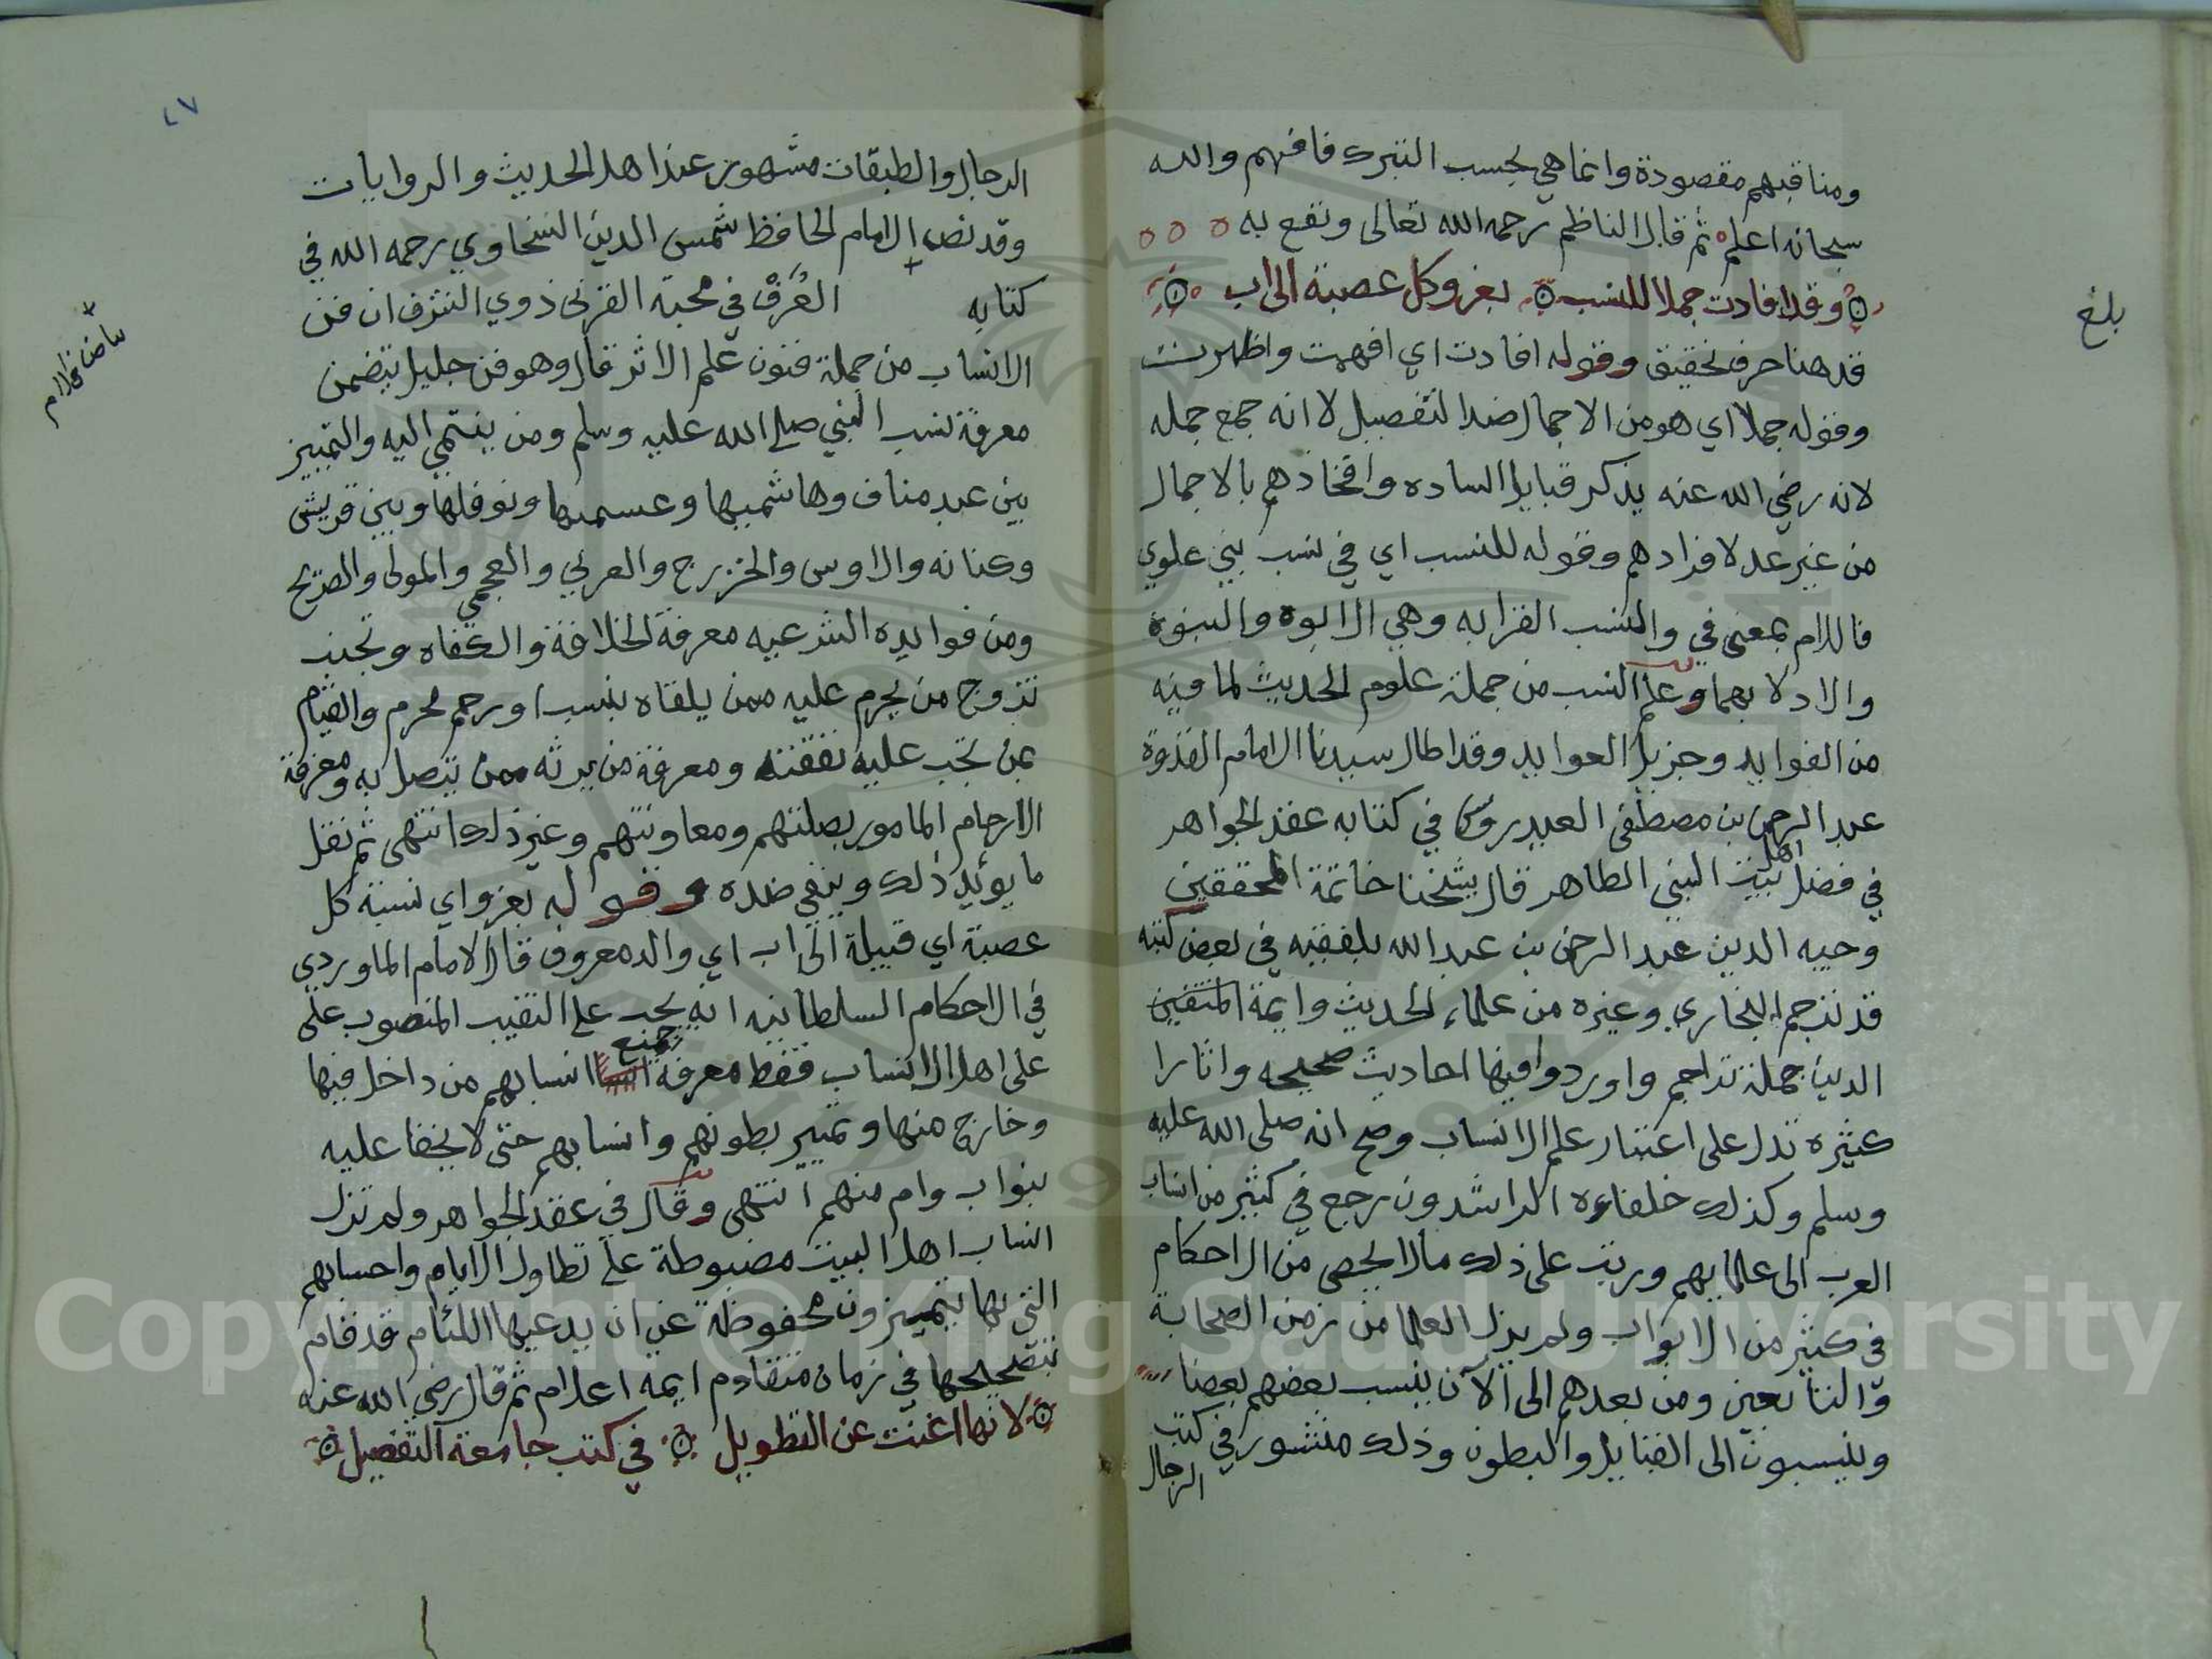 ومناقبهم مقصودة وانما هي بحسب التبرك فافهم والله
سبحانه اعلم ثم قال الناظم رحمه الله تعالى ونفع به
وقد افادت جملا للنسب بعزو كل عصبة الى اب
بلغ
قد هنا حرف تحقيق وقوله افادت اي افهمت واظهرت
وقوله جملا اي هو من الاجمال ضد التفصيل لا انه جمع جمله
لانه رضي الله عنه يذكر قبايل الساده وافخاذهم بالاجمال
من غير عد لافرادهم وقوله للنسب اي في نسب بني علوي
فاللام بمعنى في والنسب القرابه وهي الابوه والبنوة
والادلا بهما وعلم النسب من جملة علوم الحديث لما فيه
من الفوايد وجزيل العوايد وقد اطال سيدنا الامام القدوة
عبد الرحمن بن مصطفى العيدروس في كتابه عقد الجواهر
في فضل اهل بيت النبي الطاهر قال شيخنا خاتمة المحققين
وجيه الدين عبد الرحمن بن عبد الله بلفقيه في بعض كتبه
قد ترجم البخاري وغيره من علماء الحديث وايمة المتقين
الدين جملة تراجم واوردوا فيها احاديث صحيحه واثارا
كثيره تدل على اعتبار علم الانساب وصح انه صلى الله عليه
وسلم وكذلك خلفاءه الراشدون رجع في كثير من انساب
العرب الى علمايهم ورتب على ذلك مالا يحصى من الاحكام
في كثير من الابواب ولم يزل العلما من زمن الصحابة
والتابعين ومن بعدهم الى الآن ينسب بعضهم بعضا
وينسبون الى القبايل والبطون وذلك منشور في كتب
الرجال
٤٧
الرجال والطبقات مشهور عند اهل الحديث والروايات
وقد نص الامام الحافظ شمس الدين السخاوي رحمه الله في
كتابه العرف في محبة القربى ذوي الشرف ان فن
بياض في الام
الانساب من جملة فنون علم الاثر قال وهو فن جليل يتضمن
معرفة نسب النبي صلى الله عليه وسلم ومن ينتمي اليه والتمييز
بين عبد مناف وهاشميها وعبسميها ونوفلها وبين قريش
وكنانه والاوس والخزرج والعربي والعجمي والمولى والصريح
ومن فوايده الشرعيه معرفة الخلافة والكفاه وتجنب
تزوج من يحرم عليه ممن يلقاه بنسب او رحم محرم والقيام
بمن تجب عليه نفقته ومعرفة من يرثه ممن يتصل به ومعرفة
الارحام المامور بصلتهم ومعاونتهم وغير ذلك انتهى ثم نقل
ما يوئيد ذلك وينفي ضده وقوله بعزو اي نسبة كل
عصبة اي قبيلة الى اب اي والد معروف قال الامام الماوردي
في الاحكام السلطانيه انه يجب على النقيب المنصوب على
على اهل الانساب فقط معرفة جميع انسابهم من داخل فيها
وخارج منها وتمييز بطونهم وانسابهم حتى لا يخفا عليه
بنو اب وام منهم انتهى وقال في عقد الجواهر ولم تزل
انساب اهل البيت مضبوطة على تطاول الايام واحسابهم
التي بها يتميزون محفوظة عن ان يدعيها اللئام قد قام
بتصحيحها في زمان متقادم ايمه اعلام ثم قال رضي الله عنه
لانها اغنت عن التطويل في كتب جامعة التفصيل
Copyright © King Saud University